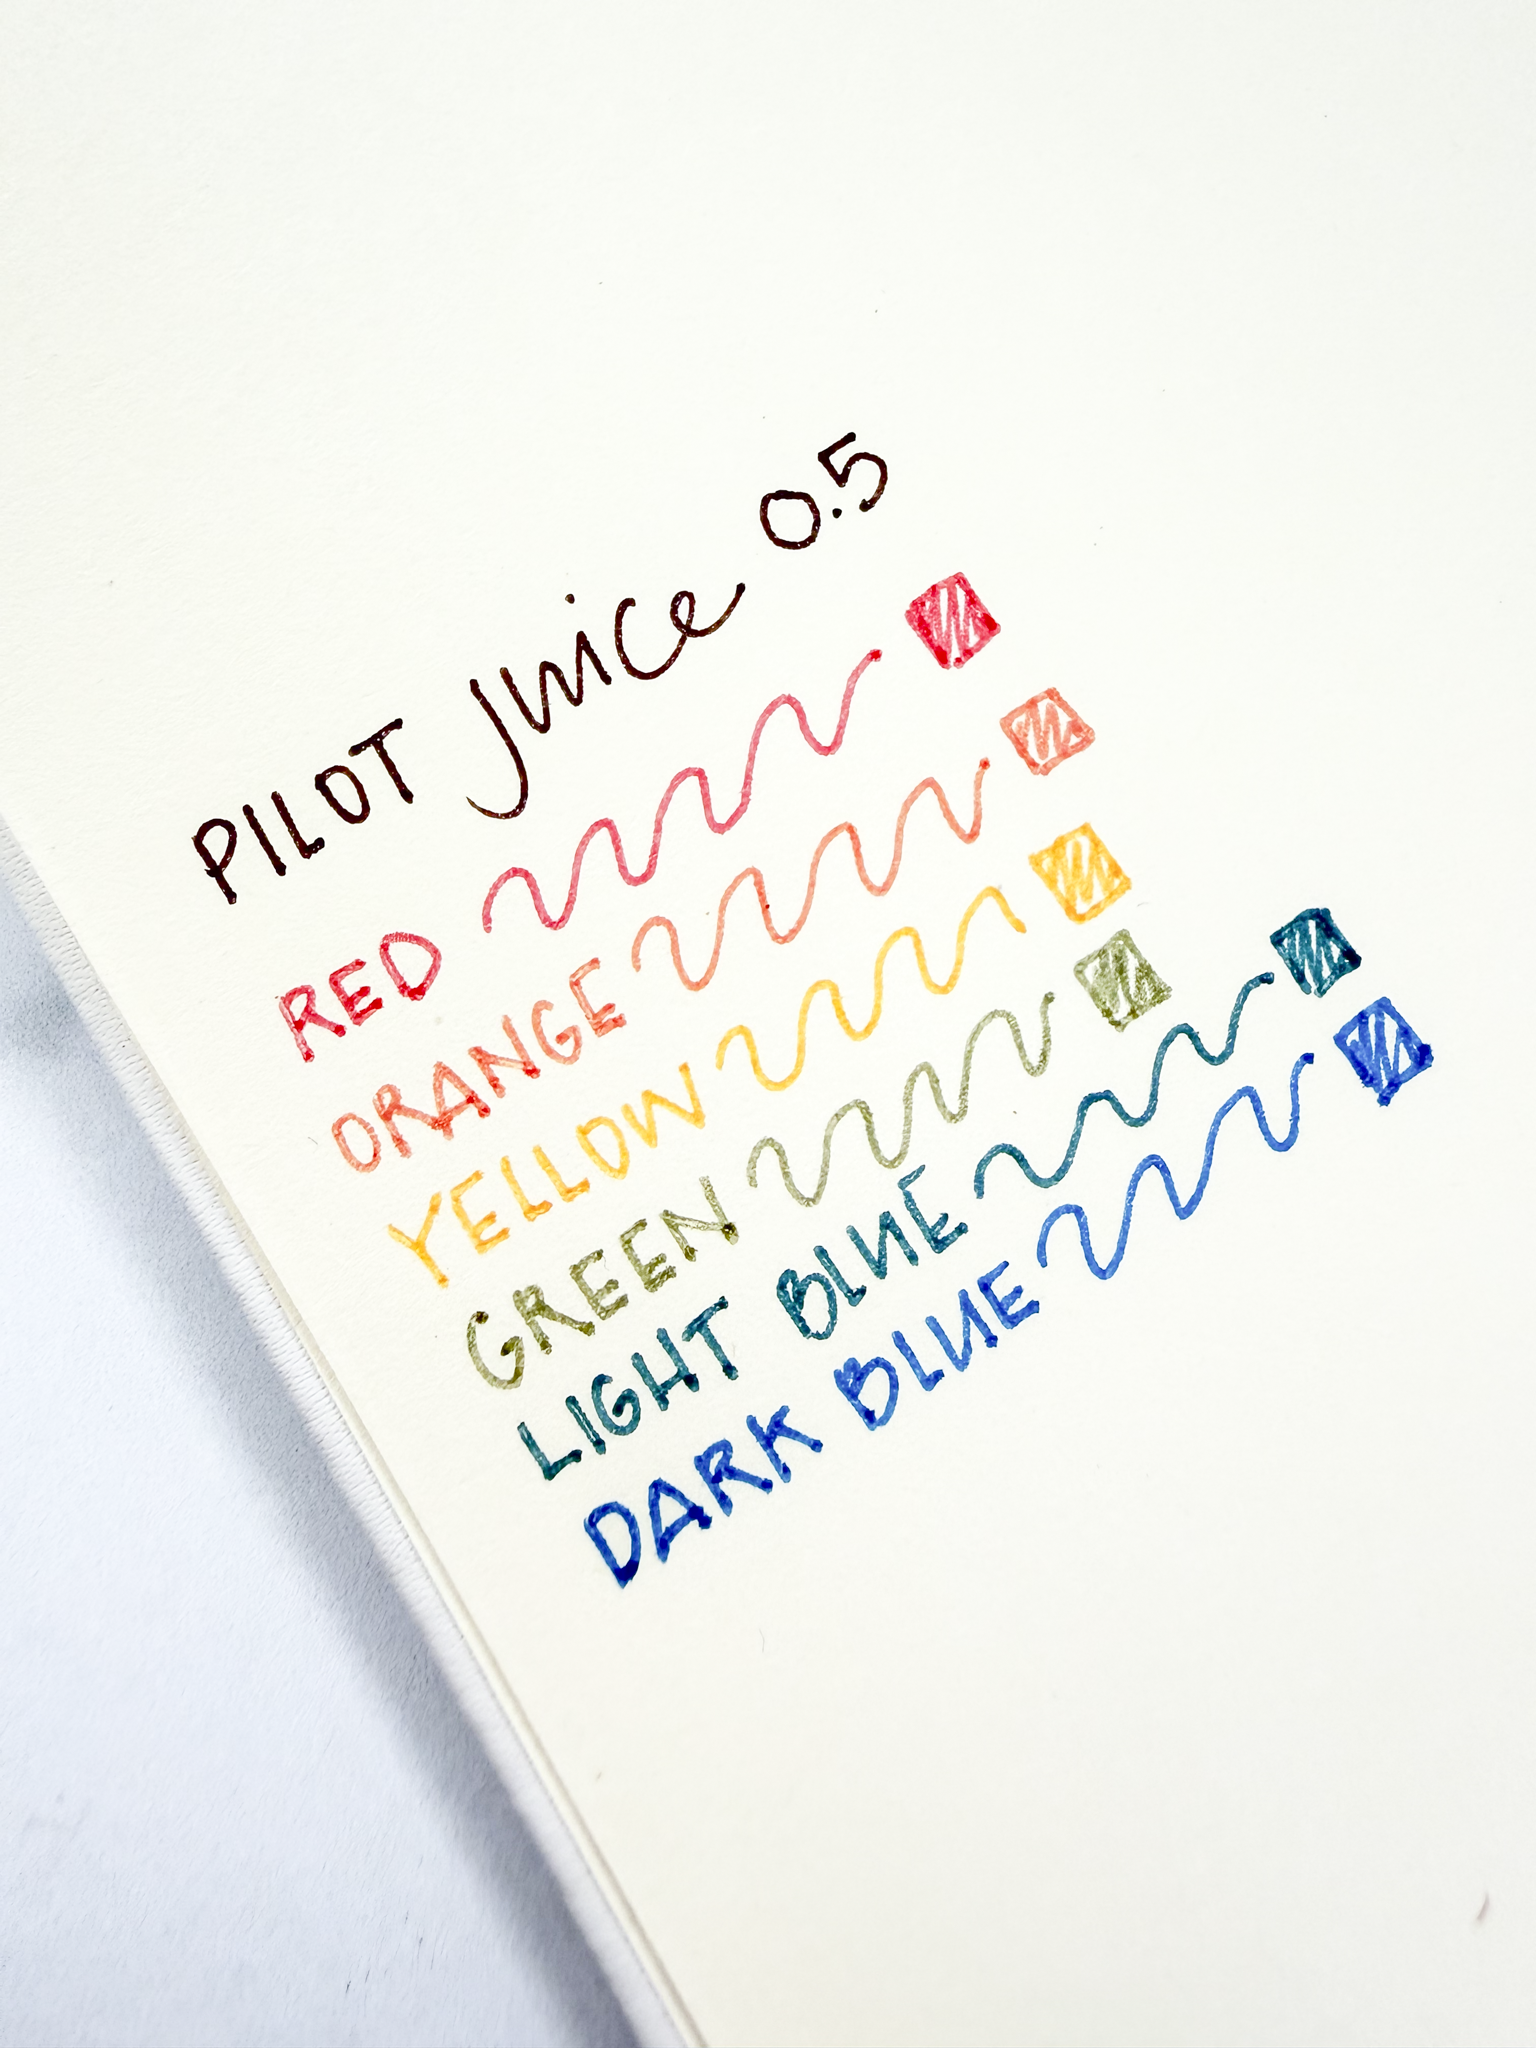 PILOT Juice 0.5
RED
ORANGE
YELLOW
GREEN
LIGHT BLUE
DARK BLUE